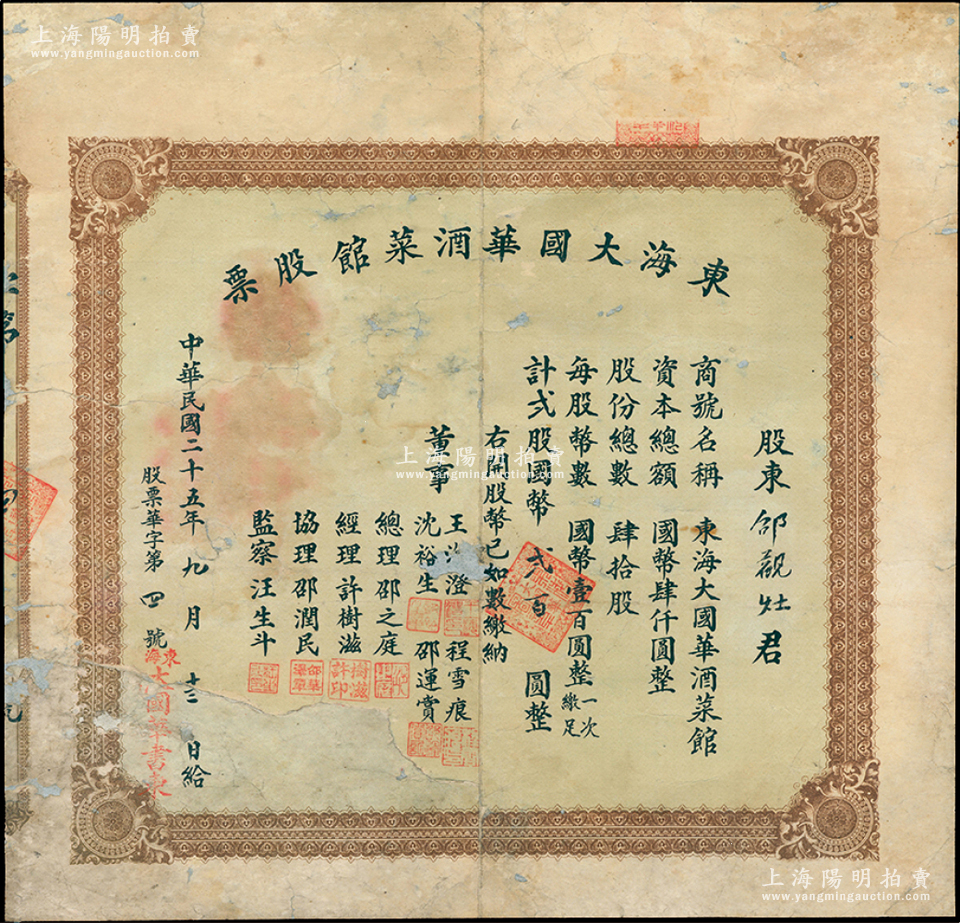 上海陽明拍賣
www.yangmingauction.com
東海大國華酒菜館股票
股東 邵觀灶 君
商號名稱 東海大國華酒菜館
資本總額 國幣肆仟圓整
股份總數 肆拾股
每股幣數 國幣壹百圓整 一次繳足
計弍股國幣 弍百 圓整
右開股幣已如數繳納
董事 王 澄 程雪痕
沈裕生 邵運賞
總理 邵之庭
經理 許樹滋
協理 邵潤民
監察 汪生斗
樹滋許印
中華民國二十五年 九 月 十三 日給
股票華字第 四 號
東海大國華書柬
上海陽明拍賣
www.yangmingauction.com
上海陽明拍賣
www.yangmingauction.com